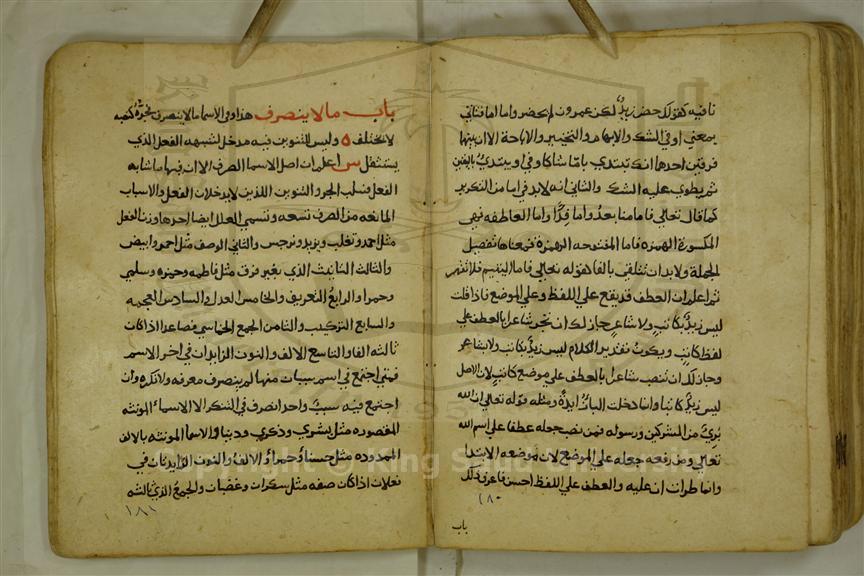 نا فيه كقولك حضر زيدٌ لكن عمرو لم يحضر واما اما فتاتي
بمعني او في الشك والابهام والتخيير والاباحة الا ان بينها
فرقين احدها انك تبتدي باما شاكا وفي او يبتدي باليقين
ثم يطرى عليه الشك والثاني انه لابد في اما من التكرير
كما قال تعالي فاما منا بعدُ واما فداً واما العاطفه فهي
المكسورة الهمزه فاما المفتوحه الهمزه فمعناها تفصيل
الجملة ولابد ان تتلقي بالفا لقوله تعالي فاما اليتيم فلا تقهر
ثم اعلم ان العطف قد يقع علي اللفظ وعلي الموضع فاذا قلت
ليس زيدٌ بكاتبٍ ولا شاعرٍ جاز لك ان تجر شاعرا بالعطف علي
لفظ كاتب ويكون تقدير الكلام ليس زيدٌ بكاتب ولا بشاعر
وجاز لك ان تنصب شاعرا بالعطف علي موضع كاتب لان الاصل
ليس زيدٌ كاتبا وانما دخلت الباء زايدةً ومثله قوله تعالي ان الله
بريءٌ من المشركين ورسوله فمن نصب جعله عطفا علي اسم الله
تعالي ومن رفعه جعله علي الموضع لان موضعه الابتدا
وانما طرات ان عليه والعطف علي اللفظ احسن فاعرف ذلك
١٨٠
باب
باب ما لا ينصرف هذا وفي الاسما ما لا ينصرف فجرُّه كنصبه
لا يختلف ٥ وليس للتنوين فيه مدخل لشبهه الفعل الذي
يستثقل س اعلم ان اصل الاسما الصرف الا ان فيها ما شابه
الفعل فسلب الجر والتنوين اللذين لا يدخلان الفعل والاسباب
المانعه من الصرف تسعه وتسمي العلل ايضا احدها وزن الفعل
مثل احمد وتغلب ويزيد ونرجس والثاني الوصف مثل احمر وابيض
والثالث التانيث الذي بغير فرق مثل فاطمه وحمزه وسلمي
وحمرا والرابع التعريف والخامس العدل والسادس العجمه
والسابع التركيب والثامن الجمع الخماسي فصاعدا اذا كان
ثالثه الفا والتاسع الالف والنون الزايدتان في اخر الاسم
فمتي اجتمع في اسم سببان منها لم ينصرف معرفه ولا نكره وان
اجتمع فيه سببٌ واحد انصرف في التنكر الا الاسماء المونثه
المقصوره مثل بشري وذكري ودنيا والاسما المونثه بالالف
الممدوده مثل حسناء وحمراء والالف والنون الزايدتان في
فعلان اذا كان صفه مثل سكران وغضبان والجمع الذي ثالثه
١٨١